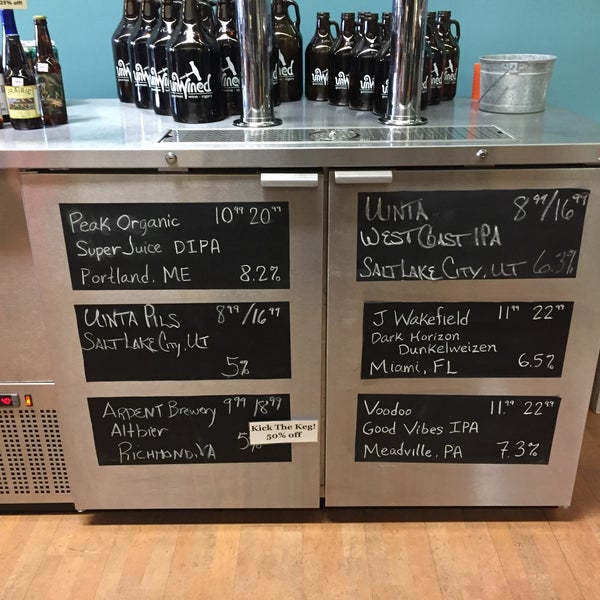 25% off!
PRAIRIE
unWined
unWined
Peak Organic 10⁹⁹ 20⁹⁹
Super Juice DIPA
Portland, ME 8.2%
UINTA PILS 8⁹⁹/16⁹⁹
SALT LAKE CITY, UT
5%
ARDENT Brewery 9⁹⁹/18⁹⁹
Altbier 5%
RICHMOND, VA
Kick The Keg!
50% off
UINTA 8⁹⁹/16⁹⁹
WEST COAST IPA
SALT LAKE CITY, UT 6.3%
J Wakefield 11⁹⁹ 22⁹⁹
Dark Horizon
Dunkelweizen
Miami, FL 6.5%
Voodoo 11.⁹⁹ 22⁹⁹
Good Vibes IPA
Meadville, PA 7.3%